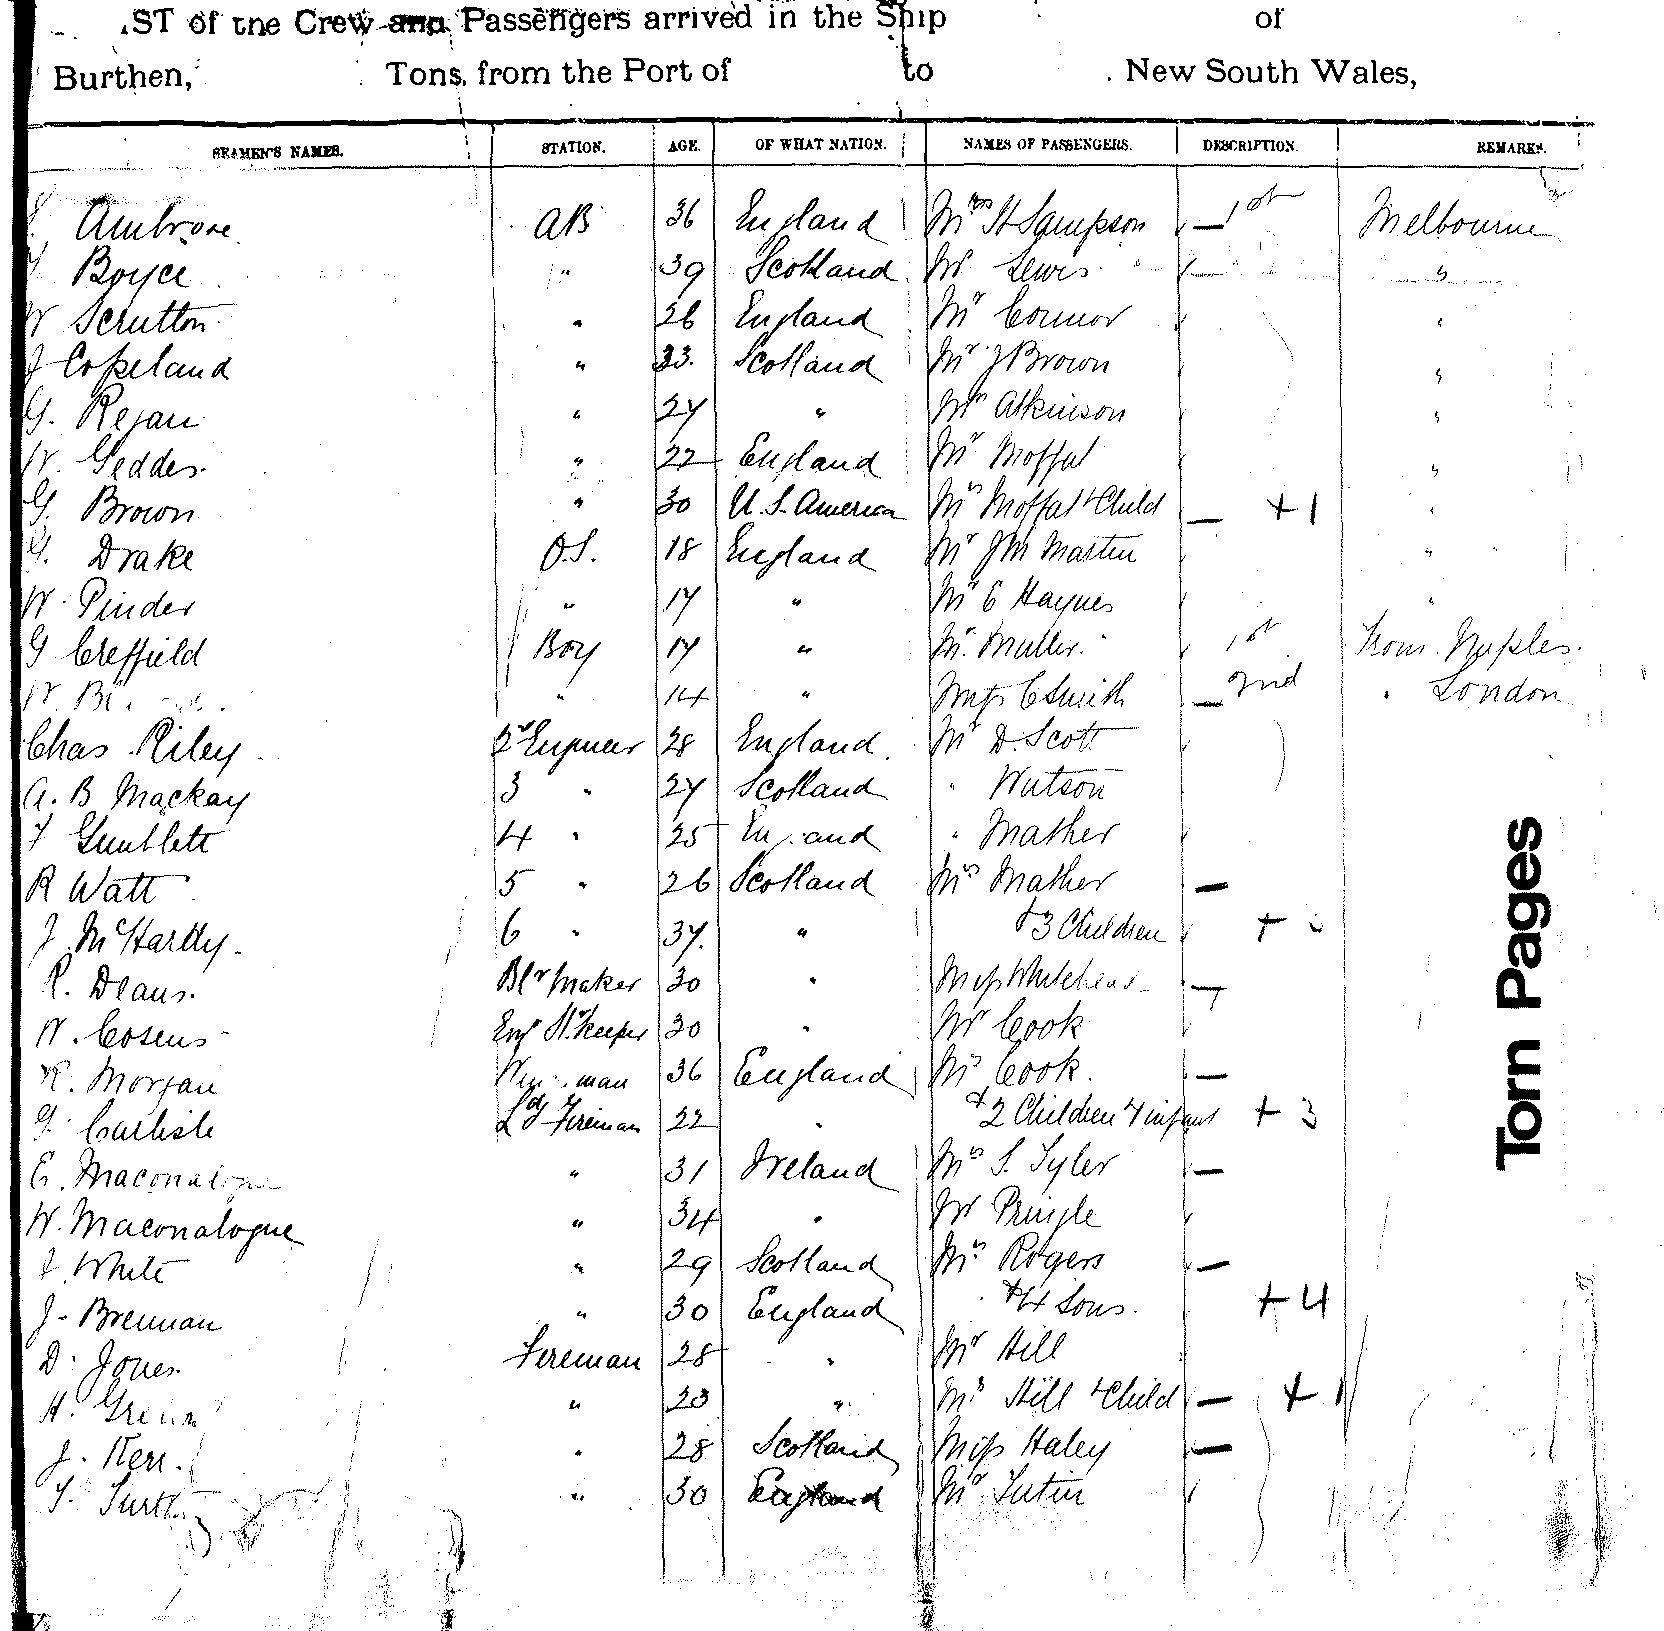 ST of the Crew and Passengers arrived in the Ship of
Burthen, Tons, from the Port of to New South Wales,
SEAMEN'S NAMES. STATION. AGE. OF WHAT NATION. NAMES OF PASSENGERS. DESCRIPTION. REMARKS.
Ambrose AB 36 England Mrs H Sampson — 1st Melbourne
Boyce " 39 Scotland Mr Lewis "
W Scrutton " 26 England Mr Connor "
J Copeland " 33. Scotland Mr J Brown "
G. Regan " 27 " Mr Atkinson "
W. Geddes " 22 England Mr Moffat "
G. Brown " 30 U.S. America Mrs Moffat & Child — + 1 "
G. Drake O.S. 18 England Mr J M Martin "
W. Pinder " 17 " Mr C Haynes "
G Creffield Boy 17 " Mr. Muller. 1st From Naples.
W. " 14 " Miss C Smith — 2nd " London
Chas Riley 2r Engineer 28 England. Mr D. Scott
A. B Mackay 3 " 27 Scotland " Watson
Gauntlett 4 " 25 England " Mather
R Watt 5 " 26 Scotland Mrs Mather —
J. McHardy. 6 " 37. " & 3 Children +
R. Deans. Blr Maker 30 " Miss Whitehead —
W. Cosens Engr St. Keeper 30 " Mr Cook
R. Morgan man 36 England Mrs Cook. —
G. Carlisle Ldg Fireman 22 " & 2 Children & infant + 3
E. Maconalogue " 31 Ireland Mrs S. Tyler —
W. Maconalogue " 34 " Mr Pringle
J. White " 29 Scotland Mrs Rogers —
J. Brennan " 30 England & 4 Sons. + 4
D. Jones. Fireman 28 " Mr Hill
H. Green " 23 " Mrs Hill & Child — + 1
J. Kerr. " 28 Scotland Miss Haley —
" 30 England Mr Tutin
Torn Pages